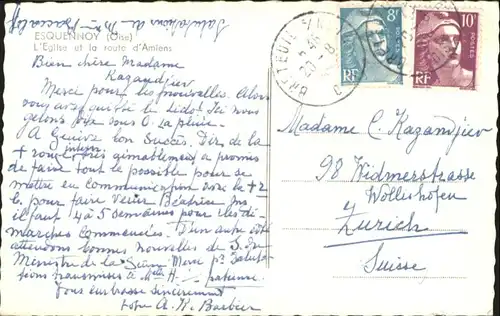 Salutations de Mme
ESQUENNOY (Oise)
L'Eglise et la route d'Amiens
Bien chère Madame
Kazandjier
Merci pour les nouvelles. Alors
vous avez quitté le Lido! Ici nous
gelons sous 0. La pluie.
A Genève bon Succès.
de la
aimablement a promis
de faire tout le possible pour se
mettre en communication avec la
pour faire venir Béatrice
il faut 4 à 5 semaines pour les dé-
marches commencées. D'un autre côté
attendons bonnes nouvelles de
Ministre de la Merci pr Saluta-
tions transmises à Melle H. patience.
Vous embrasse sincèrement
votre A. K. Barbier
BRETEUIL
8F
POSTES
RF
10F
POSTES
RF
Madame C. Kazandjier
98 Widmerstrasse
Wollishofen
Zurich
Suisse